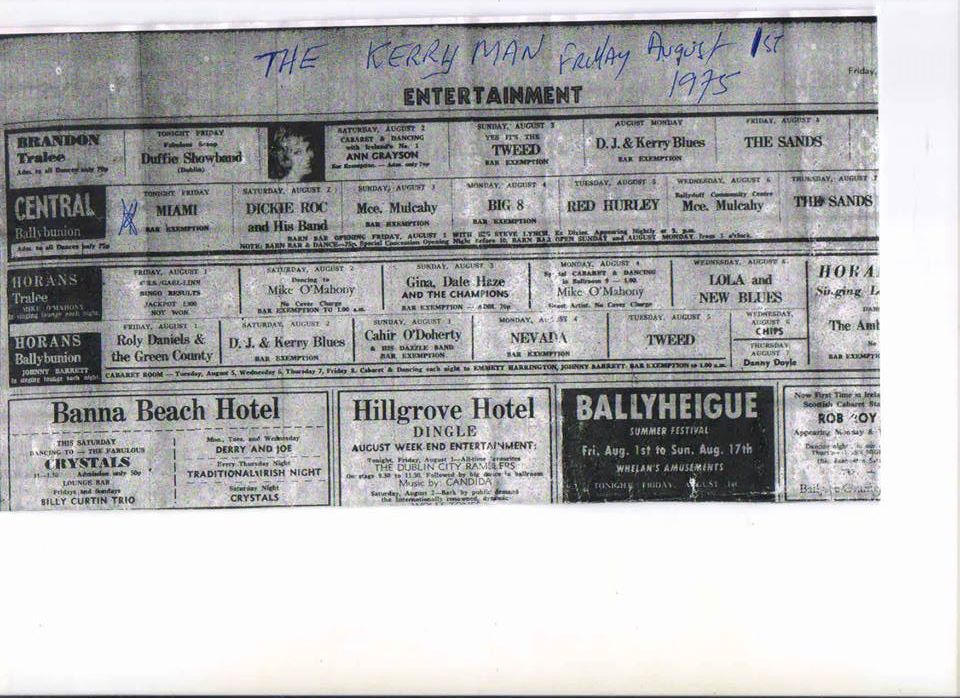 THE KERRY MAN FRIday August 1ST
1975
Friday,
ENTERTAINMENT
BRANDON
Tralee
Adm. to all Dances only 75p
TONIGHT FRIDAY
Fabulous Group
Duffie Showband
(Dublin)
SATURDAY, AUGUST 2
CABARET & DANCING
with Ireland's No. 1
ANN GRAYSON
Bar Exemption — Adm. only 75p
SUNDAY, AUGUST 3
YES IT'S THE
TWEED
BAR EXEMPTION
AUGUST MONDAY
D. J. & Kerry Blues
BAR EXEMPTION
FRIDAY, AUGUST 8
THE SANDS
CENTRAL
Ballybunion
Adm. to all Dances only 75p
TONIGHT FRIDAY
MIAMI
BAR EXEMPTION
SATURDAY, AUGUST 2
DICKIE ROC
and His Band
SUNDAY, AUGUST 3
Mce. Mulcahy
BAR EXEMPTION
MONDAY, AUGUST 4
BIG 8
BAR EXEMPTION
TUESDAY, AUGUST 5
RED HURLEY
WEDNESDAY, AUGUST 6
Ballyduff Community Centre
Mce. Mulcahy
THURSDAY, AUGUST 7
THE SANDS
BARN BAR OPENING FRIDAY, AUGUST 1 WITH STEVE LYNCH, Ex Dixies. Appearing Nightly at 9 p.m.
NOTE: BARN BAR & DANCE—75p. Special Concession Opening Night before 10. BARN BAR OPEN SUNDAY and AUGUST MONDAY from 5 o'clock.
HORANS
Tralee
MIKE O'MAHONY
in singing lounge each night
FRIDAY, AUGUST 1
BINGO RESULTS
JACKPOT £300
NOT WON
SATURDAY, AUGUST 2
Dancing to
Mike O'Mahony
No Cover Charge
BAR EXEMPTION TO 1.00 a.m.
SUNDAY, AUGUST 3
Gina, Dale Haze
AND THE CHAMPIONS
BAR EXEMPTION — ADM. 70p
MONDAY, AUGUST 4
Special CABARET & DANCING
in Ballroom 9 — 1.00.
Mike O'Mahony
Guest Artist. No Cover Charge
WEDNESDAY, AUGUST 6
LOLA and
NEW BLUES
HORA
Singing L
HORANS
Ballybunion
JOHNNY BARRETT
in singing lounge each night
FRIDAY, AUGUST 1
Roly Daniels &
the Green County
SATURDAY, AUGUST 2
D. J. & Kerry Blues
BAR EXEMPTION
SUNDAY, AUGUST 3
Cahir O'Doherty
& HIS DAZZLE BAND
BAR EXEMPTION
MONDAY, AUGUST 4
NEVADA
BAR EXEMPTION
TUESDAY, AUGUST 5
TWEED
WEDNESDAY,
AUGUST 6
CHIPS
THURSDAY
AUGUST 7
Danny Doyle
The Amb
No
BAR EXEMPTI
CABARET ROOM — Tuesday, August 5, Wednesday 6, Thursday 7, Friday 8. Cabaret & Dancing each night to EMMETT HARRINGTON, JOHNNY BARRETT. BAR EXEMPTION to 1.00 a.m.
Banna Beach Hotel
THIS SATURDAY
DANCING TO — THE FABULOUS
CRYSTALS
Admission only 50p
LOUNGE BAR
Fridays and Sundays
BILLY CURTIN TRIO
Mon., Tues. and Wednesday
DERRY AND JOE
Every Thursday Night
TRADITIONAL IRISH NIGHT
Saturday Night
CRYSTALS
Hillgrove Hotel
DINGLE
AUGUST WEEK-END ENTERTAINMENT:
Tonight, Friday, August 1—All-time favourites
THE DUBLIN CITY RAMBLERS
On stage 9.30 to 11.30. Followed by big dance in ballroom
Music by: CANDIDA
Saturday, August 2—Back by public demand
the internationally renowned, dynamic
WOLFE TONES
BALLYHEIGUE
SUMMER FESTIVAL
Fri. Aug. 1st to Sun. Aug. 17th
WHELAN'S AMUSEMENTS
TONIGHT FRIDAY, AUGUST 1st
Now First Time in Irela
Scottish Cabaret Sta
ROB ROY
Appearing Monday &